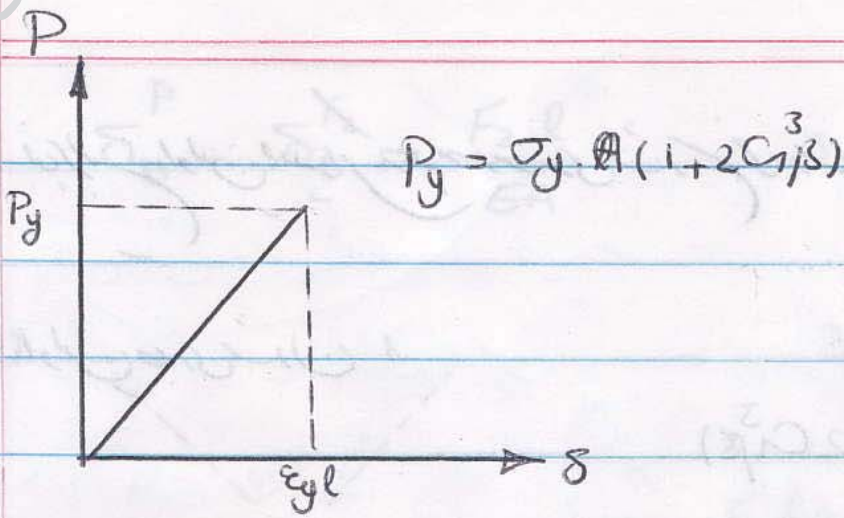 P
P_y = σ_y . A (1 + 2Cos³β)
P_y
ε_y l
δ